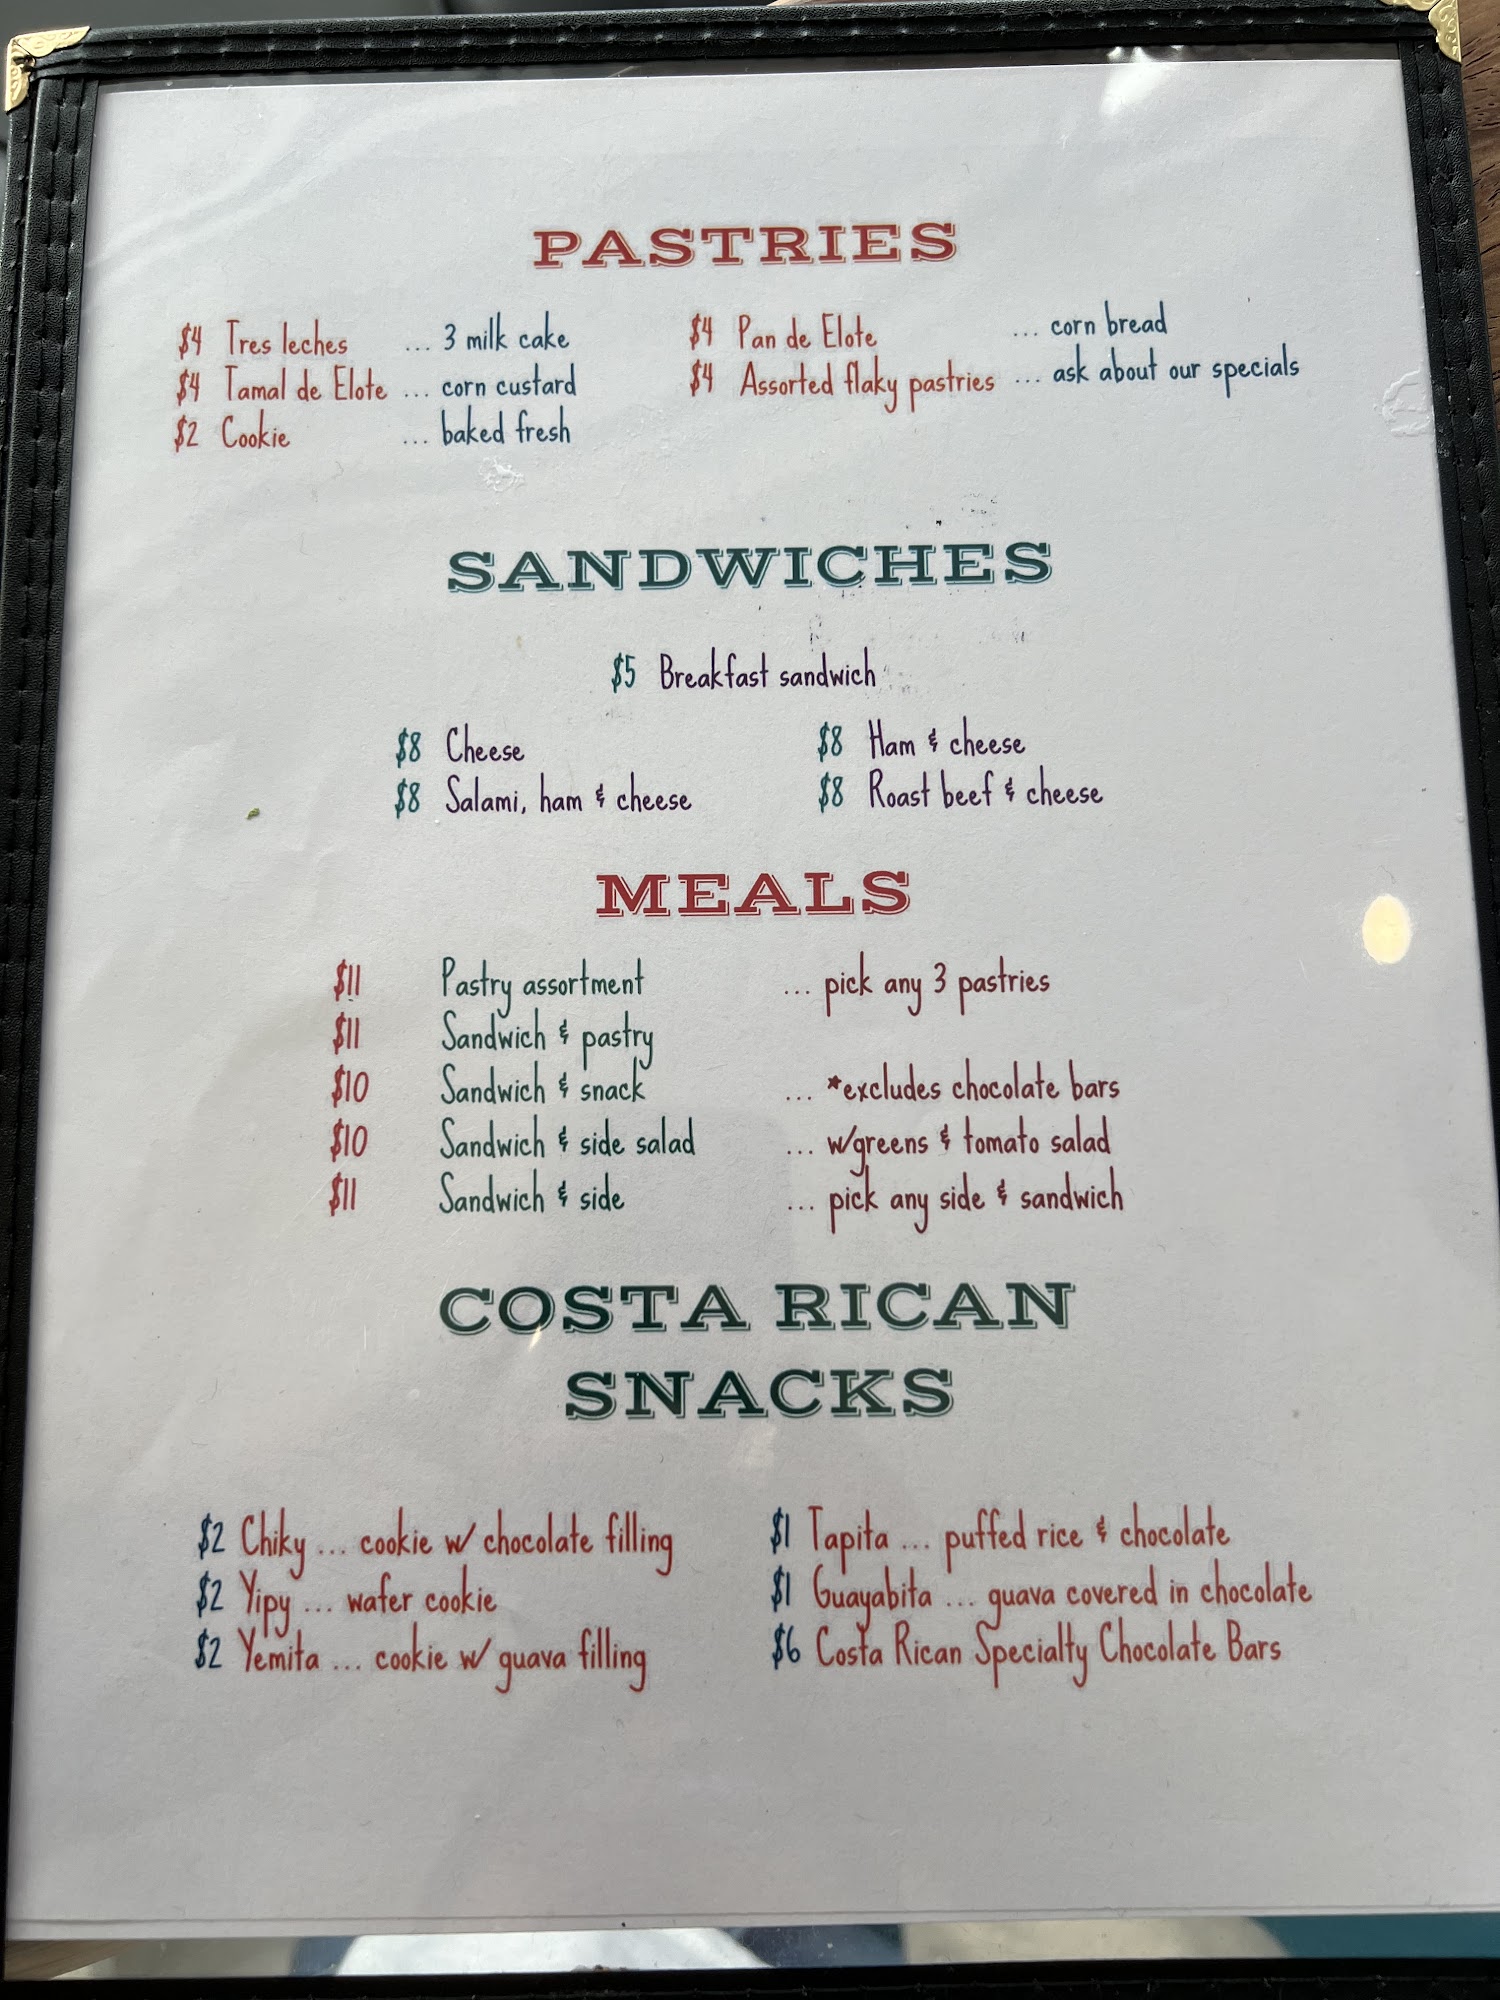 PASTRIES
$4 Tres leches ... 3 milk cake
$4 Tamal de Elote ... corn custard
$2 Cookie ... baked fresh
$4 Pan de Elote ... corn bread
$4 Assorted flaky pastries ... ask about our specials
SANDWICHES
$5 Breakfast sandwich
$8 Cheese
$8 Salami, ham & cheese
$8 Ham & cheese
$8 Roast beef & cheese
MEALS
$11 Pastry assortment ... pick any 3 pastries
$11 Sandwich & pastry
$10 Sandwich & snack ... *excludes chocolate bars
$10 Sandwich & side salad ... w/greens & tomato salad
$11 Sandwich & side ... pick any side & sandwich
COSTA RICAN
SNACKS
$2 Chiky ... cookie w/ chocolate filling
$2 Yipy ... wafer cookie
$2 Yemita ... cookie w/ guava filling
$1 Tapita ... puffed rice & chocolate
$1 Guayabita ... guava covered in chocolate
$6 Costa Rican Specialty Chocolate Bars